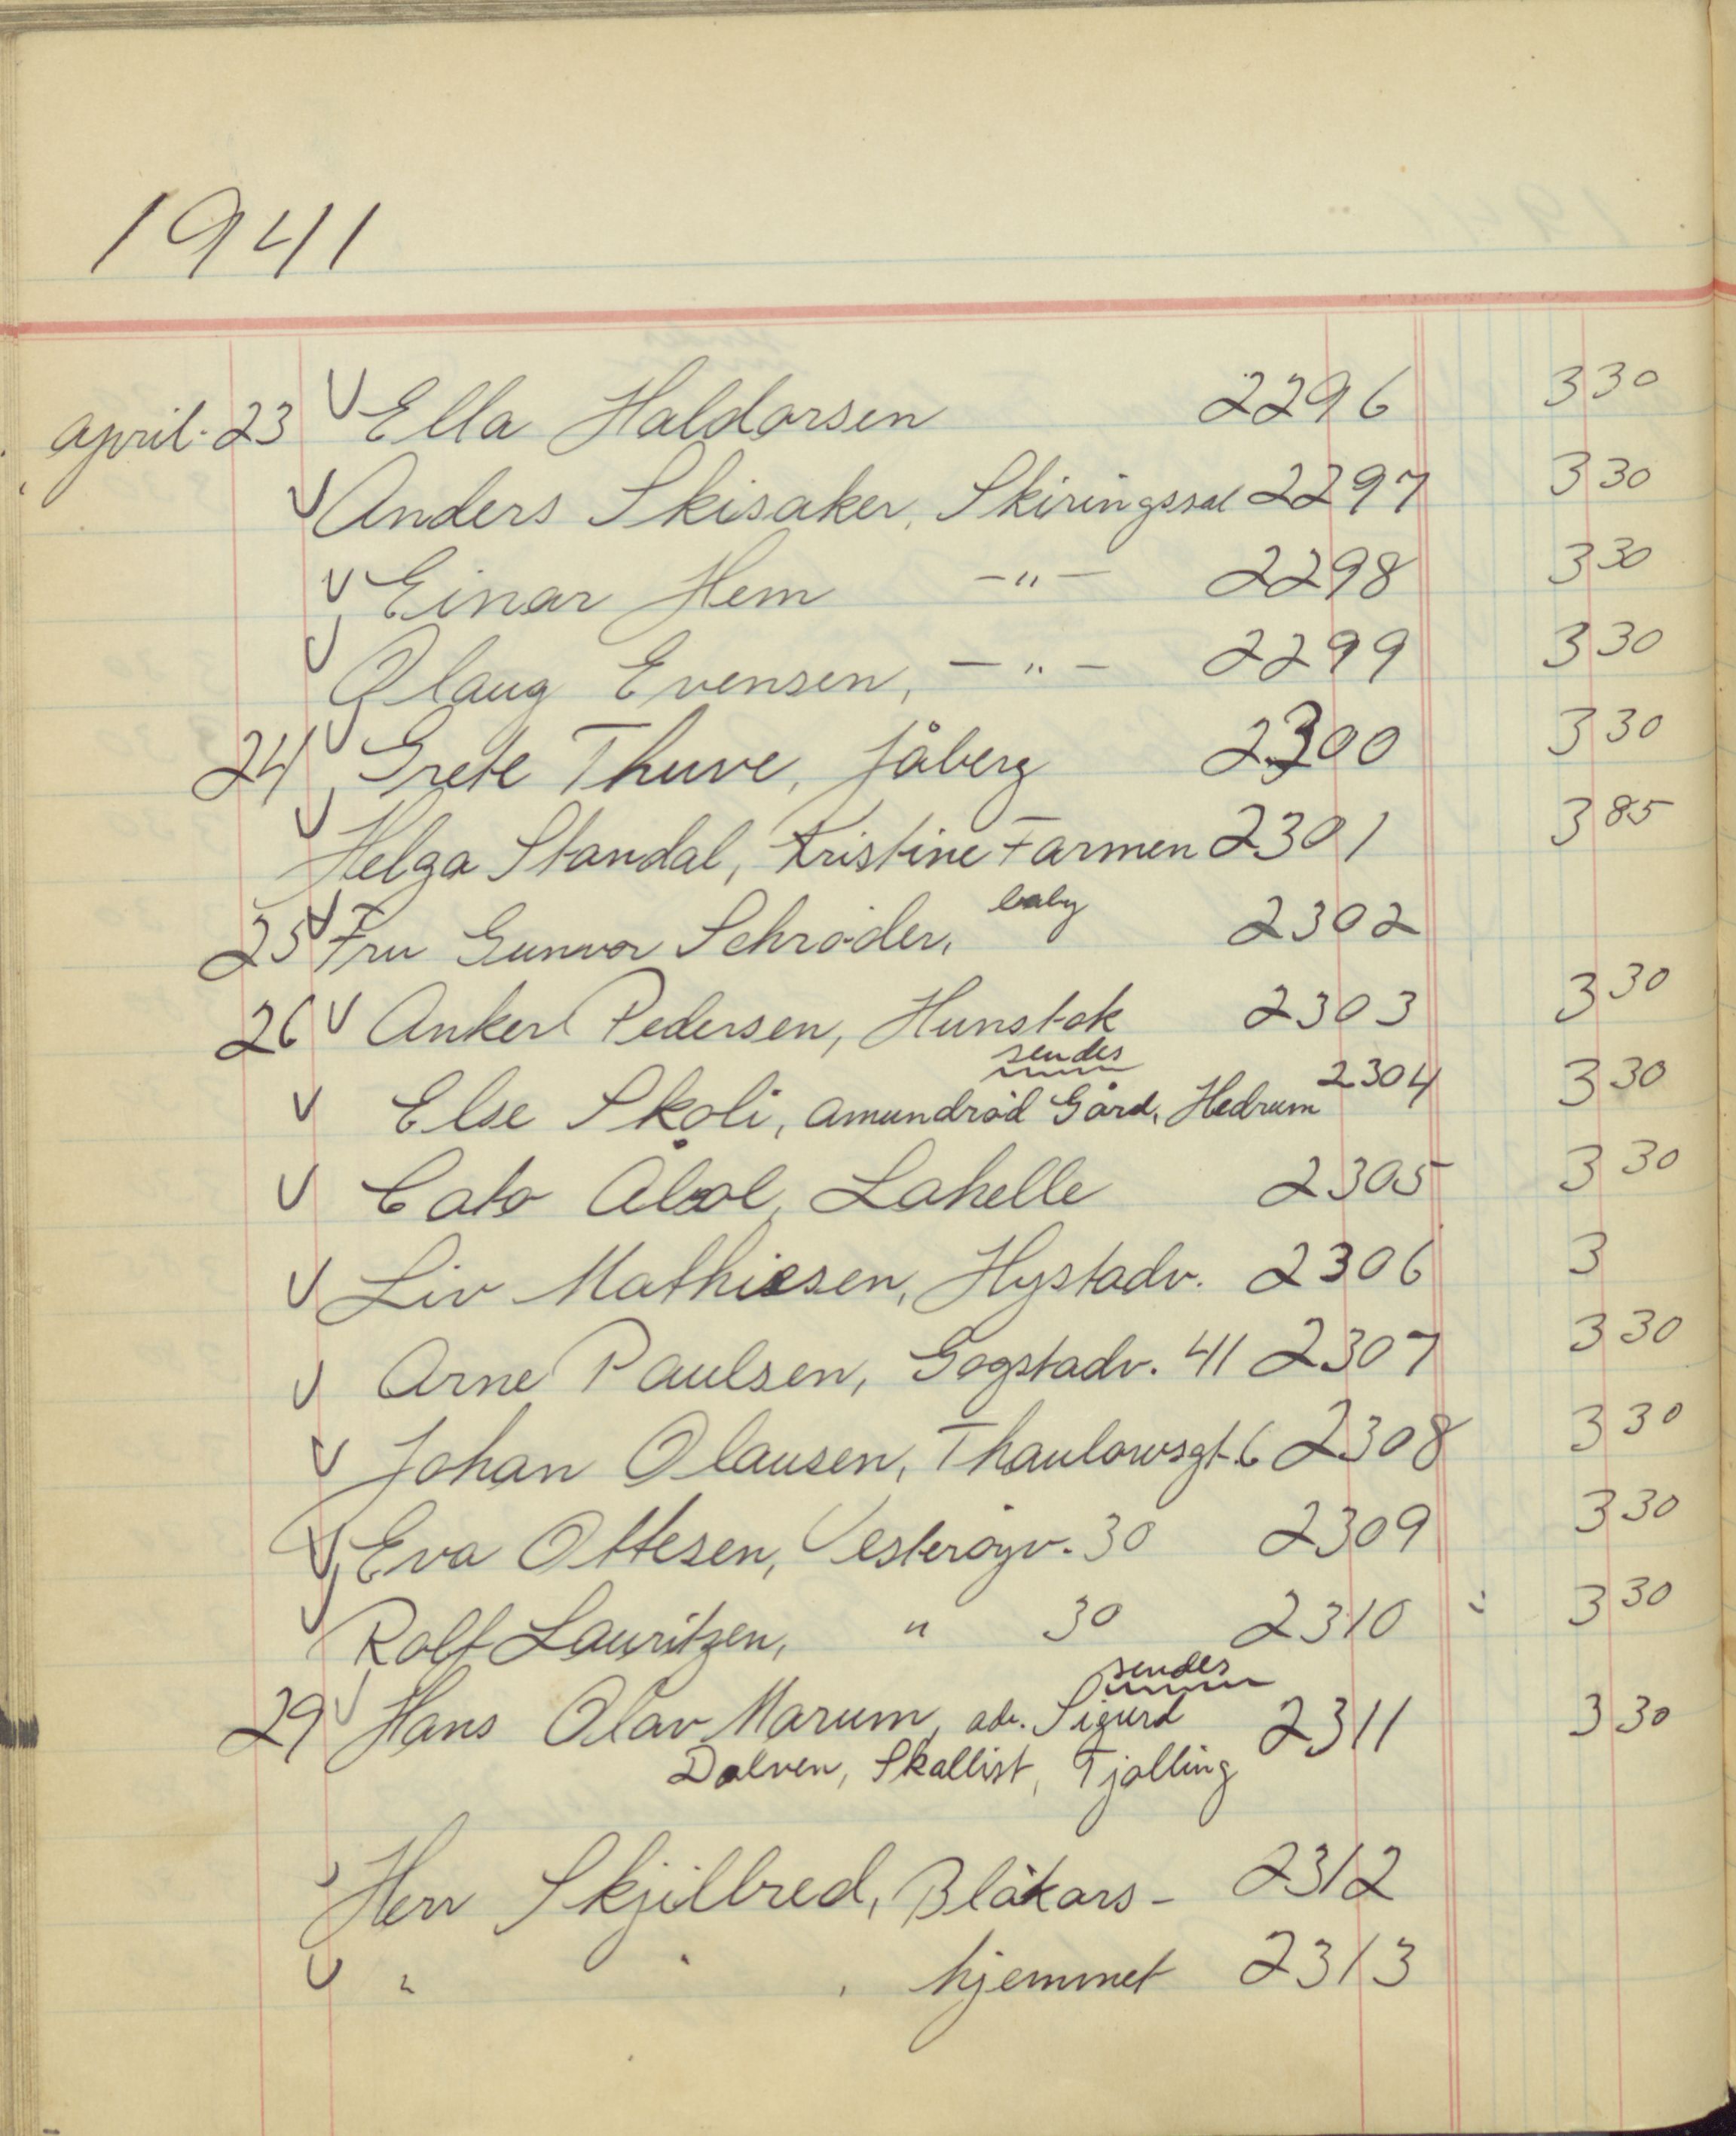 1941
april. 23 V Ella Haldorsen 2296 3 30
V Anders Skisaker, Skiringssal 2297 3 30
V Einar Hem —"— 2298 3 30
V Olaug Evensen, —"— 2299 3 30
24 V Grete Thuve, Jåberg 2300 3 30
V Helga Standal, Kristine Farmen 2301 3 85
25 V Fru Gunvor Schrøder, baby 2302
26 V Anker Pedersen, Hunstok 2303 3 30
sendes
V Else Skoli, Amundrød Gård, Hedrum 2304 3 30
V Cato Lahelle 2305 3 30
V Liv Mathisen, Hystadv. 2306 3
V Arne Paulsen, Gogstadv. 41 2307 3 30
V Johan Olausen, Thaulowsgt. 6 2308 3 30
V Eva Ottesen, Vesterøyv. 30 2309 3 30
V Rolf Lauritzen, " 30 2310 3 30
sendes
29 V Hans Olav Marum, adr. Sigurd 2311 3 30
Dalven, Skallist, Tjølling
Herr Skjelbred, Blåkors- 2312
V " " " hjemmet 2313